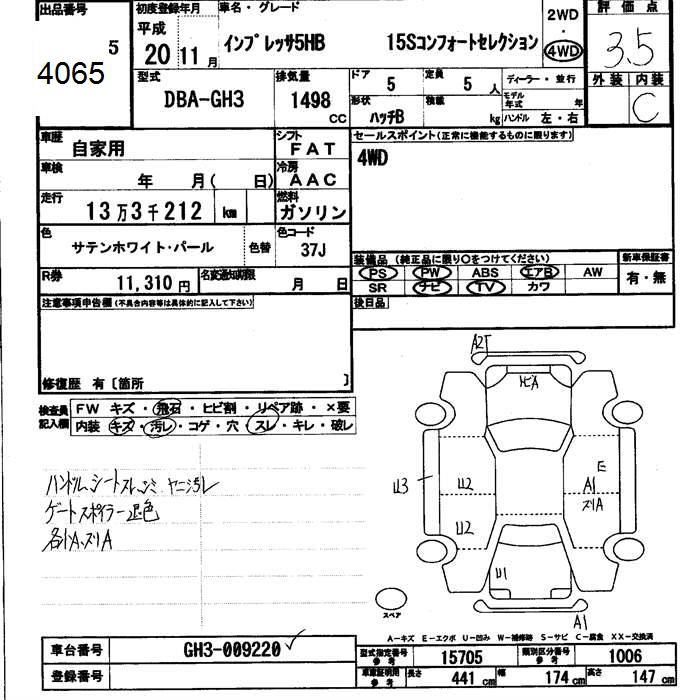 出品番号 5
4065
初度登録年月 平成 20 11 月
車名・グレード
インプレッサ5HB 15Sコンフォートセレクション
2WD
・
4WD
評価点
3.5
外装 内装
C
型式 DBA-GH3
排気量 1498 CC
ドア 5
定員 5 人
形状 ハッチB
積載 kg
ディーラー・並行
モデル年式 年
ハンドル 左・右
車歴 自家用
シフト FAT
車検 年 月( 日)
冷房 AAC
走行 13万3千212 km
燃料 ガソリン
色 サテンホワイト・パール
色替
色コード 37J
R券 11,310 円
名変通知期限 月 日
セールスポイント(正常に機能するものに限ります)
4WD
装備品 (純正品に限り○をつけてください)
PS PW ABS エアB AW
SR ナビ TV カワ
新車保証書
有・無
後日品
注意事項申告欄(不具合内容等は具体的に記入して下さい)
修復歴 有〔箇所 〕
検査員記入欄
FW キズ・飛石・ヒビ割・リペア跡・×要
内装 キズ・汚レ・コゲ・穴・スレ・キレ・破レ
ハンドル、シートスレ、シミ ヤニ汚レ
ゲートスポイラー退色
各所A、スリA
A2T
ヒA
U3
U2
U2
E
A1
スリA
U1
A1
スペア
A-キズ E-エクボ U-凹み W-補修跡 S-サビ C-腐食 XX-交換済
車台番号 GH3-009220
登録番号
型式指定番号 参考 15705
類別区分番号 参考 1006
車庫証明用 参考 長さ 441 cm 幅 174 cm 高さ 147 cm